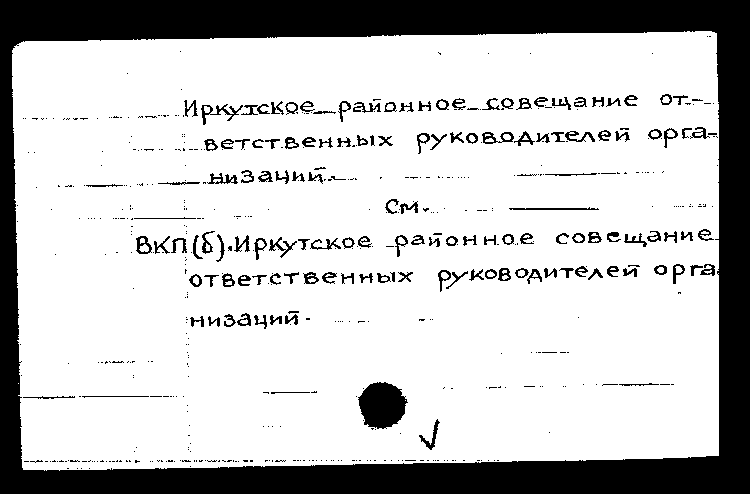 Иркутское районное совещание от-
ветственных руководителей орга-
низаций.
См.
ВКП(б). Иркутское районное совещание
ответственных руководителей орга
низаций.